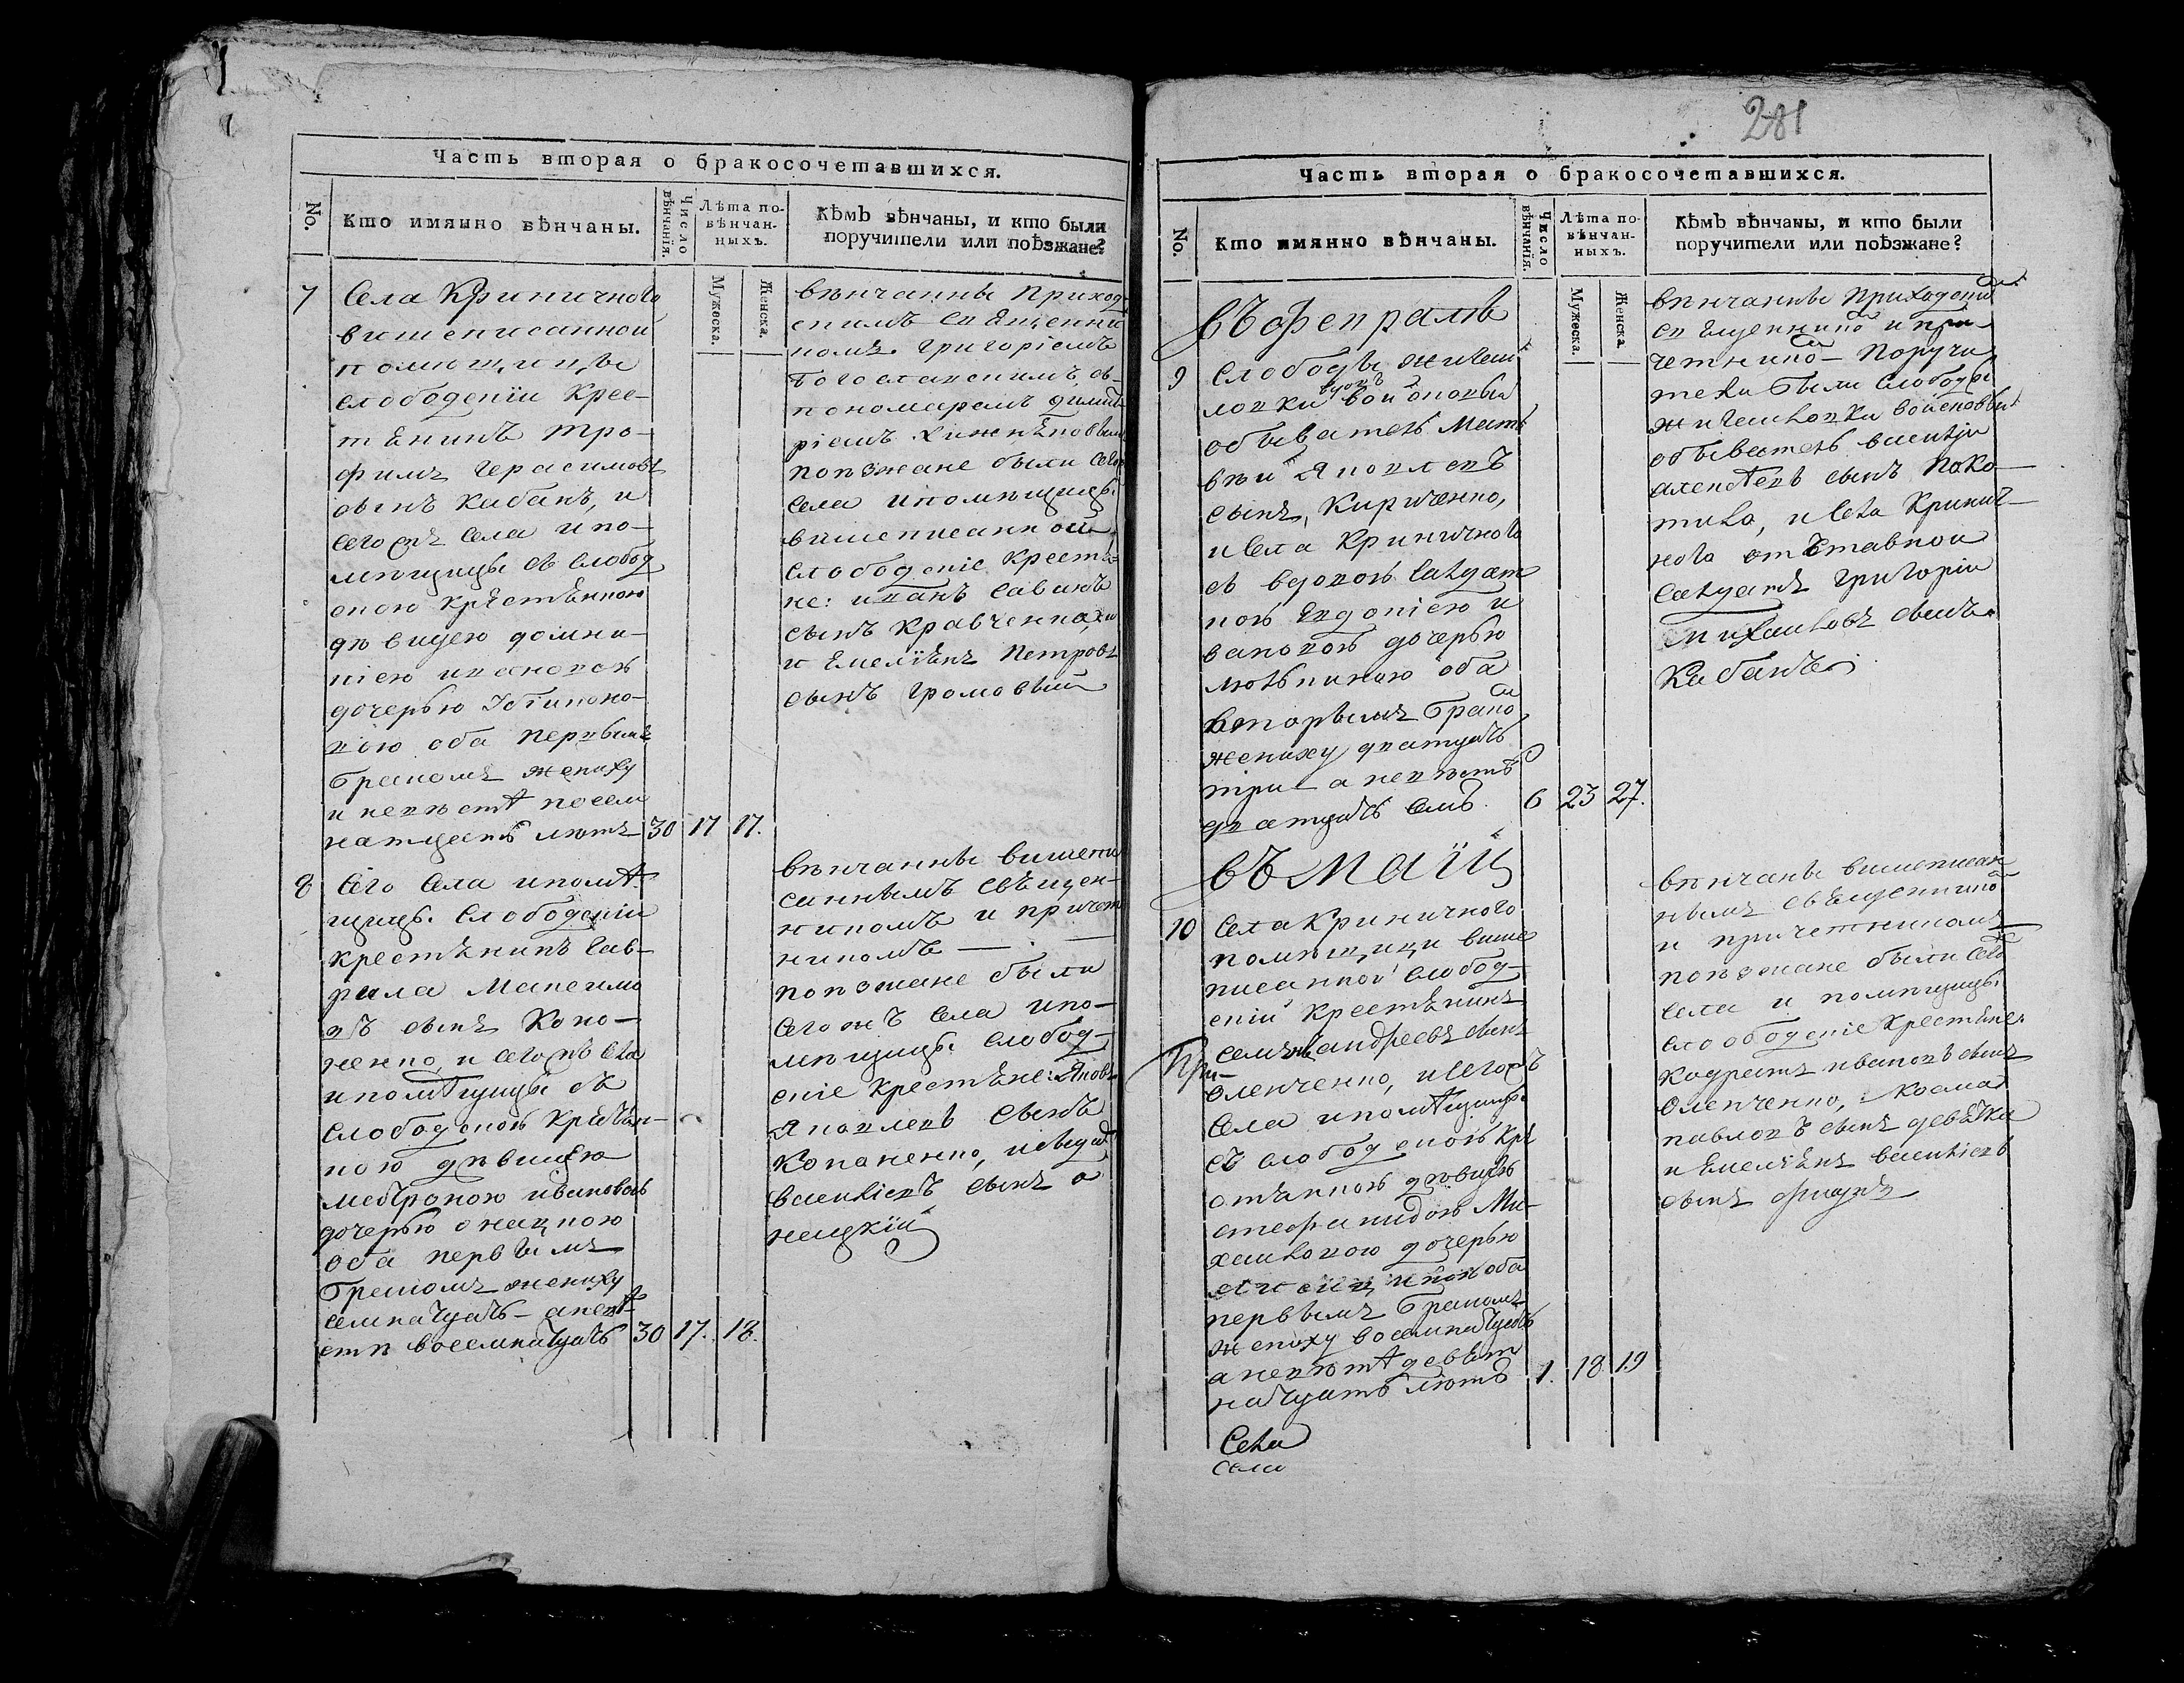 281
Часть вторая о бракосочетавшихся.
No.
Кто имянно вѣнчаны.
Число вѣнчанія.
Лѣта по-
вѣнчан-
ныхъ.
Мужеска.
Женска.
Кѣмъ вѣнчаны, и кто были
поручители или поѣзжане?
7
Села Криничного
вишеписанной
помѣщицы
слободскіи Крес-
тянинъ Тро-
фимъ Герасимовъ
сынъ Кабанъ, и
сегожъ села и по-
мѣщицы съ слобод
скою крестянкою
дѣвицею домни-
кіею ивановою
дочерью
кою оба первымъ
бракомъ жениху
и невѣстѣ по семи
натцеть лѣтъ 30 17 17.
вѣнчанны приход
скимъ священни
комъ григоріемъ
Богославскимъ съ
пономаремъ дими
ріемъ
поѣзжане были сего
села и помѣщицы
вишеписанной
слободскіе крестя
не: иванъ савинъ
сынъ Кравченко, и
и Емеліянъ Петровъ
сынъ громовый
8
Сего села и помѣ
щицы слободскіи
крестянинъ гав-
рила Макѣимо
въ сынъ Коно-
ненко, и сегожъ села
и помѣщицы съ
слободскою крѣстян-
кою дѣвицею
мотроною ивановою
дочерью
оба первымъ
бракомъ жениху
семнатцать а невѣ
стѣ восемнатцать 30 17. 18.
вѣнчанны вишепи
саннымъ свѣщен-
никомъ и причет
никомъ
поѣзжане были
сегожъ села и по-
мѣщицы слобод-
скіе крестяне: Яковъ
Яковлевъ сынъ
василіевъ сынъ о
нецкій
Часть вторая о бракосочетавшихся.
No.
Кто имянно вѣнчаны.
Число вѣнчанія.
Лѣта по-
вѣнчан-
ныхъ.
Мужеска.
Женска.
Кѣмъ вѣнчаны, и кто были
поручители или поѣзжане?
въ Февралѣ
9
Слободы жихай
ловки войсковый
вдовъ
обыватель Мать
вѣй Яковлевъ
сынъ, Кириченко,
и села Криничного
съ вдовою салдат
кою Евдокіею и
вановою дочерью
оба
вторымъ брако
жениху дватцать
три а невѣстѣ
дватцать семъ 6 23 27.
вѣнчанны приходски
священнико и при
четнико Поручи
тели были слободы
войсковый
обыватель василій
алексѣевъ сынъ
и села Кринич-
ного отъставной
салдатъ григорій
михаиловъ сынъ
Кабанъ
въ маїи
10
Села Криничного
помѣщици више
писанной слобод-
скій крестянинъ
семенъ андреевъ сынъ
Оленченко, и сегожъ
села и помѣщицы
съ слободскою кре
стянкою дѣвицею
стефанидою Ми-
хаиловою дочерью
оба
первымъ бракомъ
жениху восемнатцать
а невѣстѣ девят
натцать лѣтъ 1. 18 19
вѣнчаны вишеписан
нымъ свѣщеннико
и причетникомъ
поѣзжане были сего
села и помѣщицы
слободскіе крестяне
Кодратъ ивановъ сынъ
Оленченко, Косма
павловъ сынъ девятка
и Емелянъ василіевъ
сынъ
При-
Села